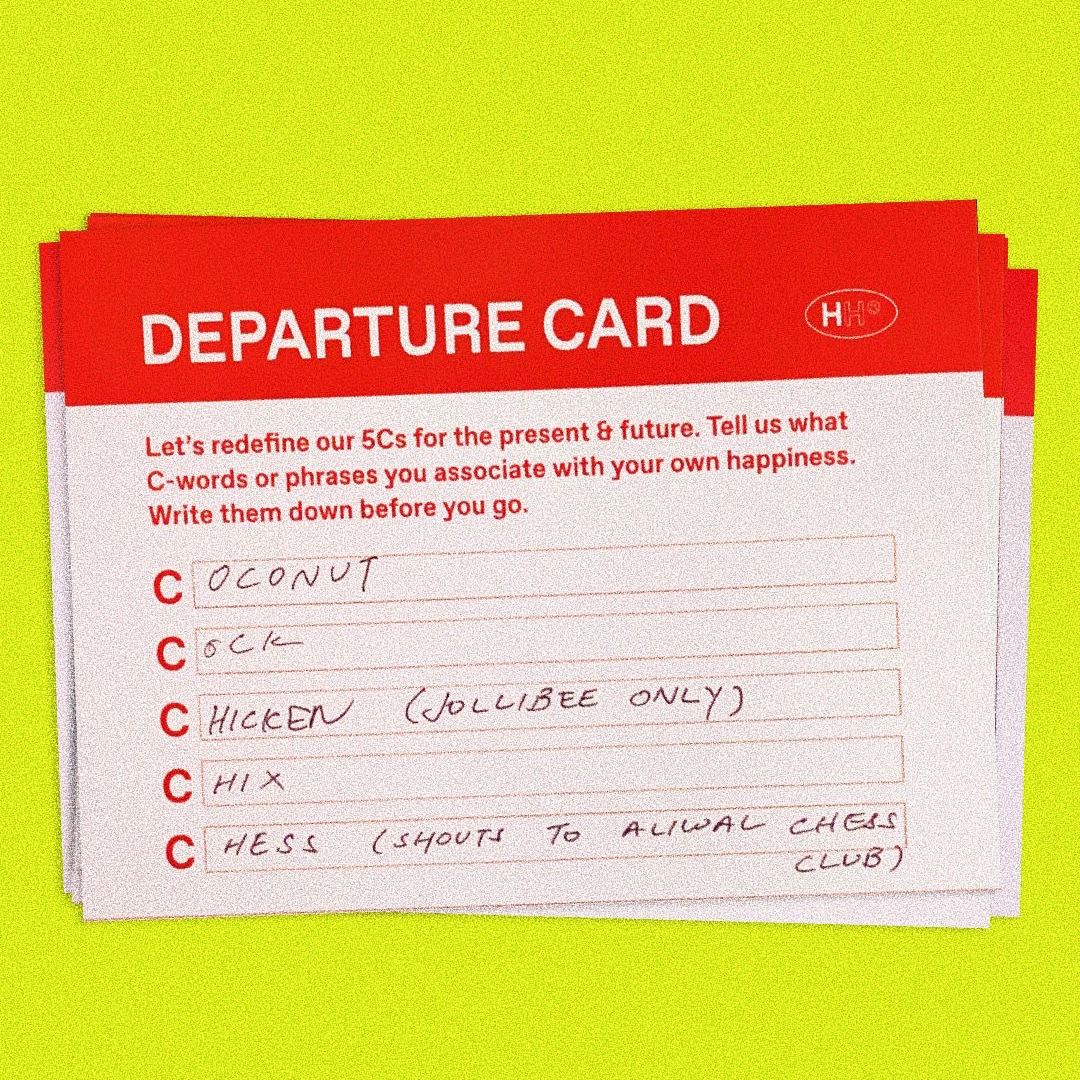 DEPARTURE CARD
HH
Let's redefine our 5Cs for the present & future. Tell us what
C-words or phrases you associate with your own happiness.
Write them down before you go.
COCONUT
COCK
CHICKEN (JOLLIBEE ONLY)
CHIX
CHESS (SHOUTS TO ALIWAL CHESS
CLUB)